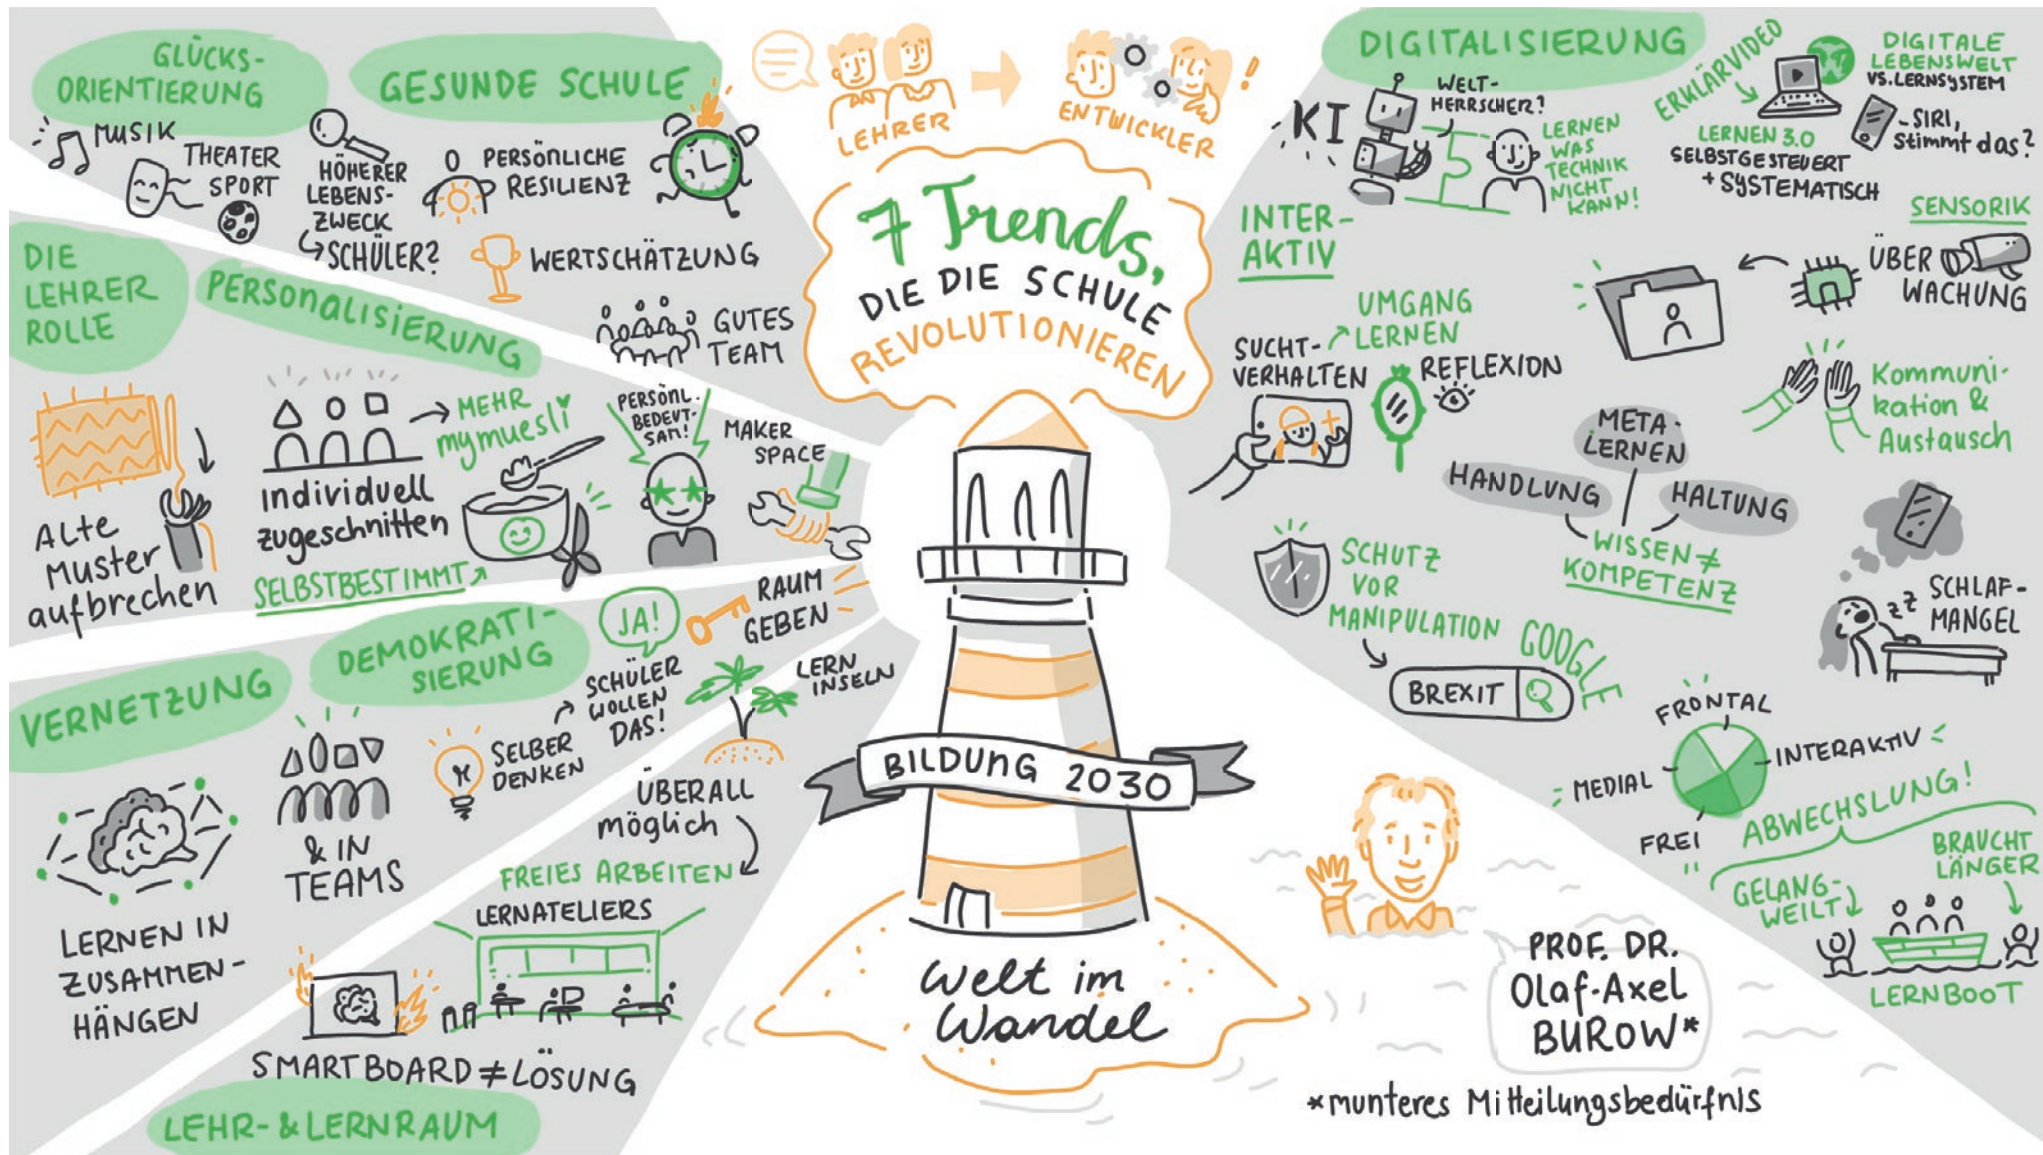 GLÜCKS-
ORIENTIERUNG
MUSIK
THEATER
SPORT
HÖHERER
LEBENS-
ZWECK
SCHÜLER?
GESUNDE SCHULE
PERSÖNLICHE
RESILIENZ
WERTSCHÄTZUNG
GUTES
TEAM
DIE
LEHRER
ROLLE
ALTE
MUSTER
aufbrechen
PERSONALISIERUNG
individuell
zugeschnitten
MEHR
mymuesli
SELBSTBESTIMMT
PERSÖNL.
BEDEUT-
SAM!
MAKER
SPACE
VERNETZUNG
LERNEN IN
ZUSAMMEN-
HÄNGEN
& IN
TEAMS
DEMOKRATI-
SIERUNG
SELBER
DENKEN
SCHÜLER
WOLLEN
DAS!
JA!
RAUM
GEBEN
LERN
INSELN
ÜBERALL
möglich
FREIES ARBEITEN
LERNATELIERS
SMARTBOARD ≠ LÖSUNG
LEHR- & LERNRAUM
LEHRER
ENTWICKLER
7 Trends,
DIE DIE SCHULE
REVOLUTIONIEREN
BILDUNG 2030
Welt im
Wandel
DIGITALISIERUNG
KI
WELT-
HERRSCHER?
LERNEN
WAS
TECHNIK
NICHT
KANN!
ERKLÄRVIDEO
LERNEN 3.0
SELBSTGESTEUERT
+ SYSTEMATISCH
DIGITALE
LEBENSWELT
VS. LERNSYSTEM
-SIRI,
Stimmt das?
INTER-
AKTIV
SENSORIK
ÜBER
WACHUNG
UMGANG
LERNEN
SUCHT-
VERHALTEN
REFLEXION
Kommuni-
kation &
Austausch
META-
LERNEN
HANDLUNG
HALTUNG
WISSEN ≠
KOMPETENZ
SCHUTZ
VOR
MANIPULATION
GOOGLE
BREXIT
SCHLAF-
MANGEL
ZZ
FRONTAL
INTERAKTIV
MEDIAL
FREI
ABWECHSLUNG!
GELANG-
WEILT
BRAUCHT
LÄNGER
LERNBOOT
PROF. DR.
Olaf-Axel
BUROW*
*munteres Mitteilungsbedürfnis